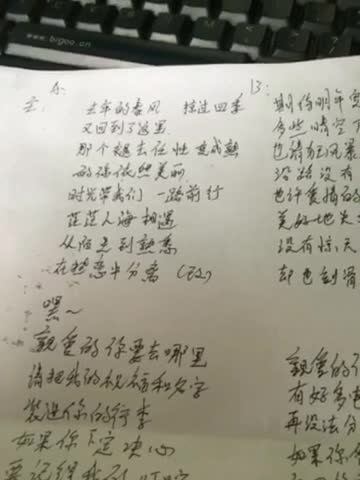 www.bigoo.cn
A:
去年的春风 掠过四季
又回到了这里
那个褪去任性变成熟
的你依然美丽
时光带我们一路前行
茫茫人海相遇
从陌生到熟悉
在熟悉中分离
嘿~
亲爱的你要去哪里
请把我的祝福和名字
装进你的行李
如果你下定决心
要记得我
B:
期待明年
多些晴空
也请狂风暴
沿路没有
也许爱情的
美好地
没有惊天
却也刻骨
亲爱的你
有好多
再没法分
如果你